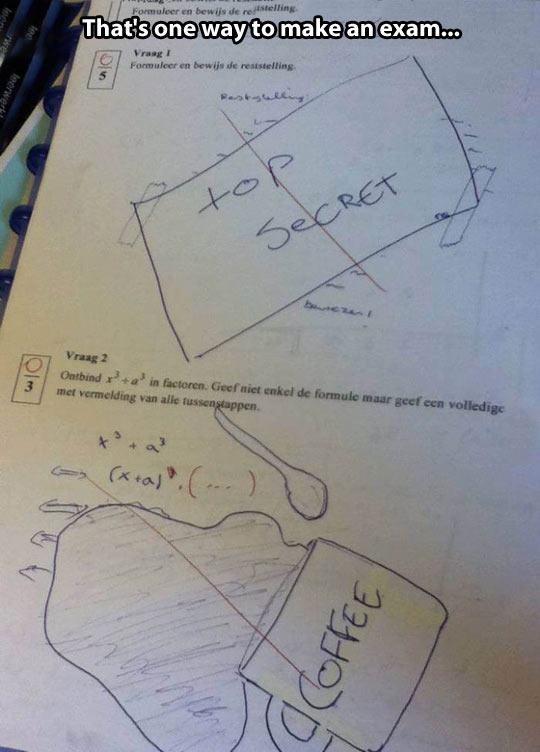 Formuleer en bewijs de reststelling.
That's one way to make an exam...
0
5
Vraag 1
Formuleer en bewijs de reststelling.
Reststelling:
TOP
SECRET
bewezen!
0
3
Vraag 2
Ontbind x³+a³ in factoren. Geef niet enkel de formule maar geef een volledige
met vermelding van alle tussenstappen.
x³ + a³
(x+a) . (...)
COFFEE